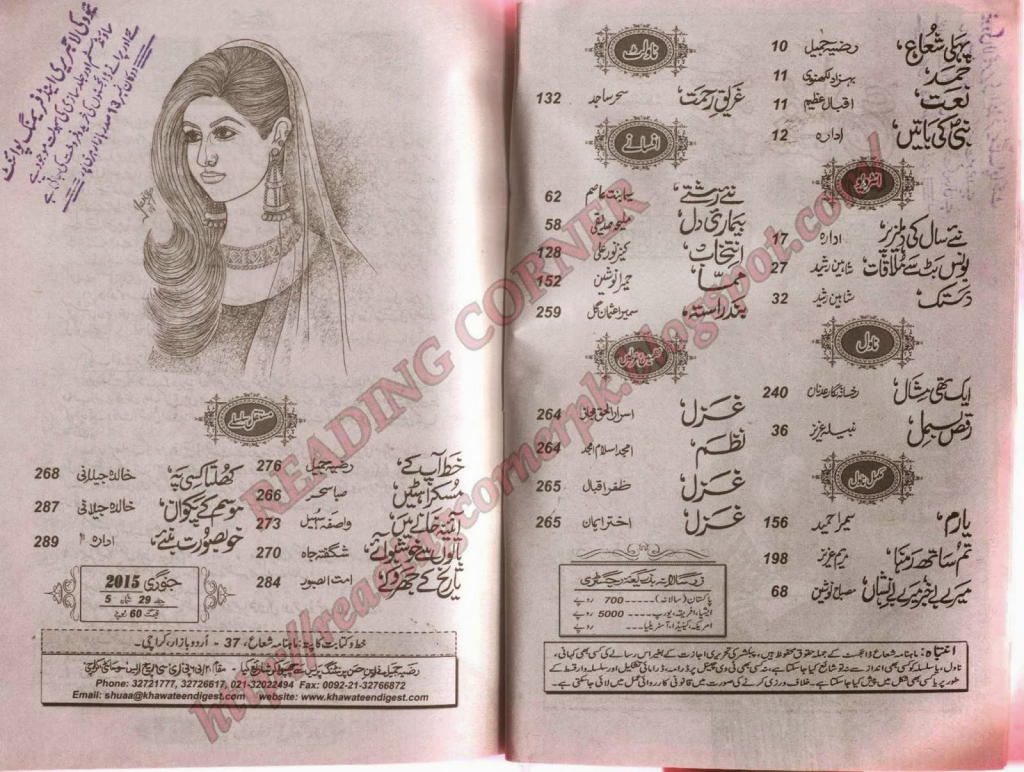 پہلی شعاع، رضیہ جمیل 10
حمد، بہزاد لکھنوی 11
نعت، اقبال عظیم 11
نبیؐ کی باتیں، ادارہ 12
انٹرویو
نئے سال کی دہلیز پر ادارہ 17
یونس بٹ سے ملاقات، شاہین رشید 27
دستک، شاہین رشید 32
ناول
ایک تھی مثال، رخسانہ نگار عدنان 240
رقص بسمل، نبیلہ عزیز 36
مکمل ناول
یارم، سمیرا حمید 156
تم ساتھ رہنا، مریم عزیز 198
میرے بے خبر میرے بے نشاں، مصباح نوشین 68
ناولٹ
غریق رحمت، سحر ساجد 132
افسانے
نئے رشتے، عاصم 62
بیماری دل، صدیقی 58
انتخاب، کنیز نور علی 128
ممتا، حمیرا نوشین 152
بند راستہ، سمیرا عثمان گل 259
نظمیں غزلیں
غزل، اسرار الحق مجاز 264
نظم، امجد اسلام امجد 264
غزل، ظفر اقبال 265
غزل، اختر ایمان 265
زر سالانہ بذریعہ رجسٹری
پاکستان (سالانہ) ---- 700 روپے
ایشیا، افریقہ، یورپ --- 5000 روپے
امریکہ، کینیڈا، آسٹریلیا --- روپے
انتباہ: ماہنامہ شعاع ڈائجسٹ کے جملہ حقوق محفوظ ہیں، پبلشر کی تحریری اجازت کے بغیر اس رسالے کی کسی بھی کہانی،
ناول، یا سلسلہ کو کسی بھی انداز سے نہ تو شائع کیا جا سکتا ہے، نہ کسی بھی ٹی وی چینل پر ڈرامہ، ڈرامائی تشکیل اور سلسلہ وار قسط کے
طور پر یا کسی بھی شکل میں پیش کیا جا سکتا ہے۔ خلاف ورزی کرنے کی صورت میں قانونی کارروائی عمل میں لائی جا سکتی ہے۔
مستقل سلسلے
خط آپ کے، رضیہ جمیل 276
مسکراہٹیں، صبا سحر 266
آئینہ خانے میں، واصفہ سہیل 273
باتوں سے خوشبو آئے، شگفتہ جاہ 270
تاریخ کے جھروکے، امت الصبور 284
کھلتا کسی پہ، خالدہ جیلانی 268
موسم کے پکوان، خالدہ جیلانی 287
خوبصورت بنئے، ادارہ 289
جنوری 2015
جلد 29 شمارہ 5
قیمت 60 روپے
خط و کتابت کا پتہ: ماہنامہ شعاع، 37 - اردو بازار، کراچی۔
رضیہ جمیل نے ابن حسن پرنٹنگ پریس سے چھپوا کر شائع کیا۔
Phone: 32721777, 32726617, 021-32022494 Fax: 0092-21-32766872
Email: shuaa@khawateendigest.com website: www.khawateendigest.com
READING CORNER
http://readingcornerpk.blogspot.com/